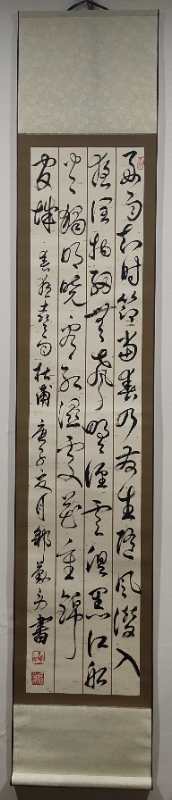 好雨知時節當春乃發生隨風潛入
夜潤物細無聲野徑雲俱黑江船
火獨明曉看紅濕處花重錦
官城 春夜喜雨 杜甫 庚子夏月 書